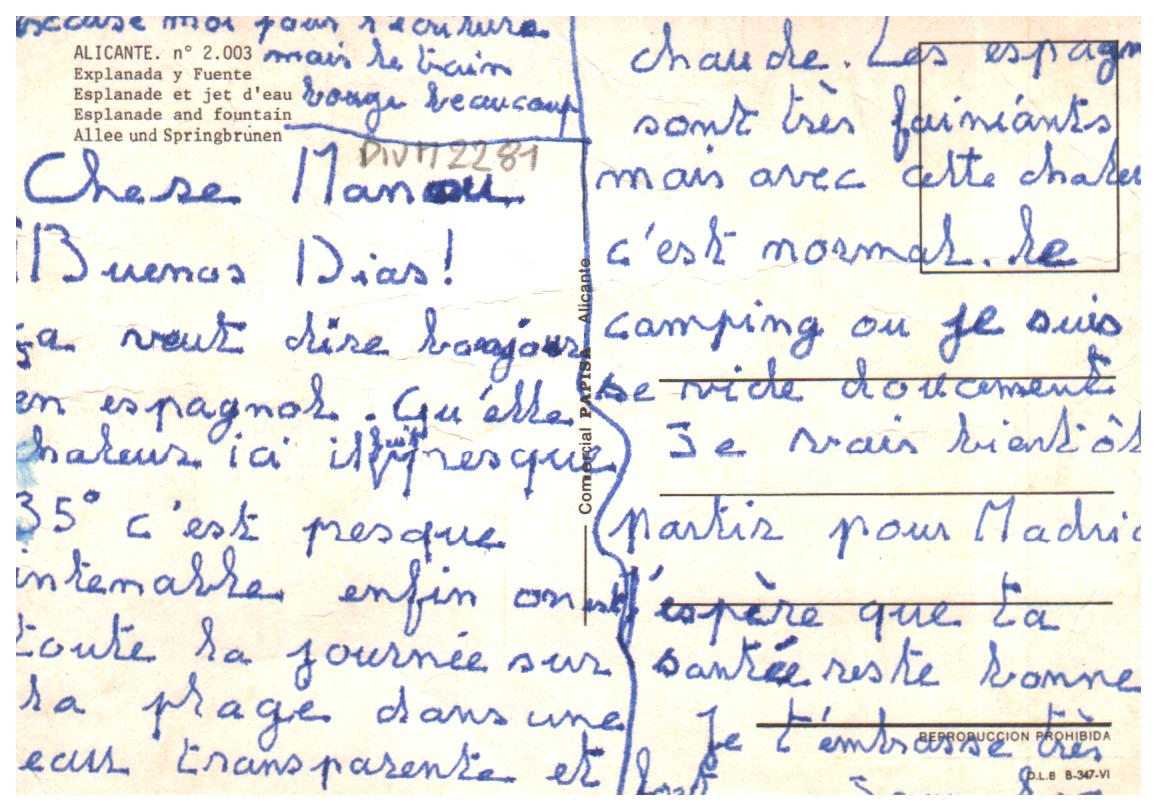 excuse moi pour l'écriture
mais le train
bouge beaucoup
ALICANTE. n° 2.003
Explanada y Fuente
Esplanade et jet d'eau
Esplanade and fountain
Allee und Springbrunen
DIVM 2281
Chere Manou
¡Buenos Dias!
ça veut dire bonjour
en espagnol. Qu'elle
chaleur ici il fait presque
35° c'est presque
intenable enfin on est
toute la journée sur
la plage dans une
eau transparente et
chaude. Les espagn
sont très fainiants
mais avec cette chaleu
c'est normal. le
camping ou je suis
se vide doucement
Je vais bientôt
partir pour Madrid
j'espère que ta
santée reste bonne
Je t'embrasse très
fort
Comercial PAPISA - Alicante
REPRODUCCION PROHIBIDA
D.L.B B-347-VI